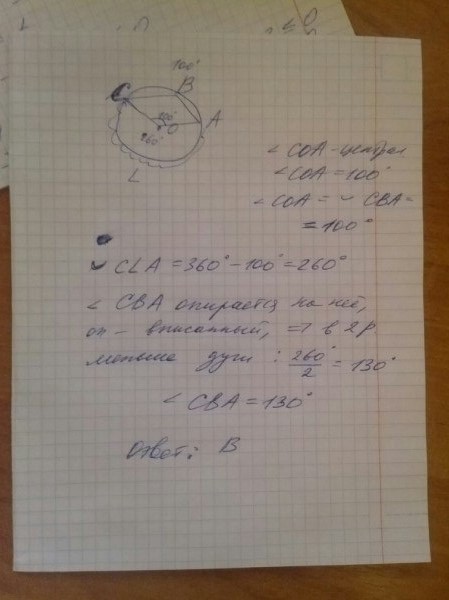 100°
B
C
100°
O
A
260°
L
∠ COA - централ
∠ COA = 100°
∠ COA = ◡ CBA =
= 100°
◡ CLA = 360° - 100° = 260°
∠ CBA опирается на неё,
он - вписанный, => в 2р
меньше дуги : 260°/2 = 130°
∠ CBA = 130°
Ответ: B